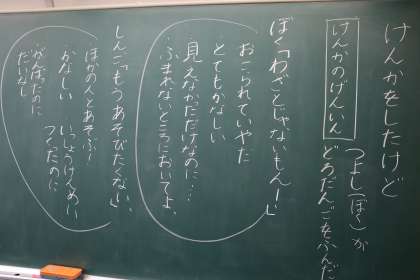 けんかをしたけど
けんかのげんいん
つよし(ぼく)が
どろだんごをふんだ
ぼく「わざとじゃないもん!」
おこられていやだ
とてもかなしい
見えなかっただけなのに…
ふまれないところにおいてよ、
しんご「もうあそびたくない、」
ほかの人とあそぶ!
かなしい いっしょうけんめい
つくったのに
がんばったのに
だいなし